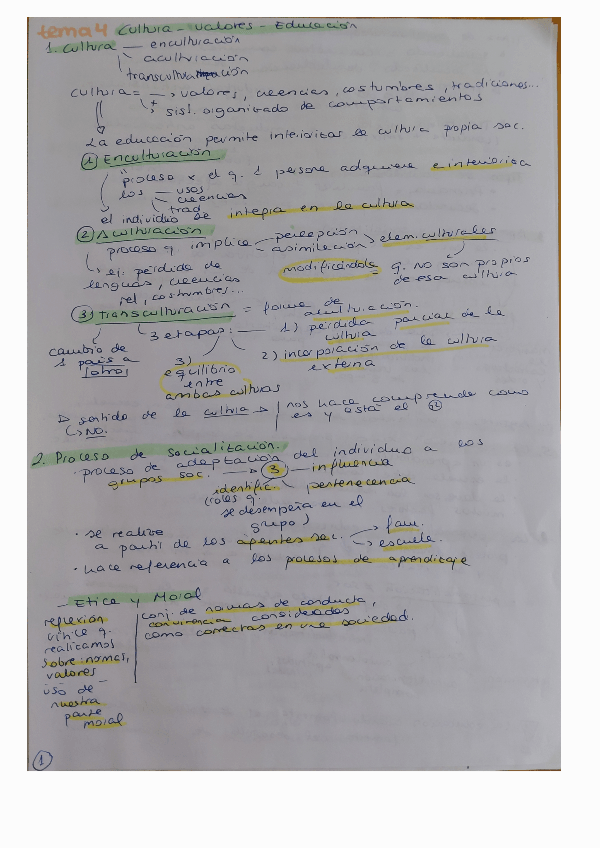 tema 4 Cultura - valores - Educación
1. Cultura — enculturación
aculturación
transculturación
cultura = → valores, creencias, costumbres, tradiciones...
+ sist. organizado de comportamientos
La educación permite interiorizar la cultura propia soc.
1) Enculturación
"proceso x el q. 1 persona adquiere e interioriza
los — usos
creencias
trad.
el individuo se integra en la cultura
2) Aculturación
proceso q. implica — percepción
asimilación > elem. culturales
ej. pérdida de
lenguas, creencias
rel, costumbres...
modificándola = q. no son propios
de esa cultura
3) transculturación = forma de
aculturación.
3 etapas: — 1) pérdida parcial de la
cultura
2) incorporación de la cultura
externa
3)
equilibrio
entre
ambas culturas
cambio de
1 país a
[otro]
▷ sentido de la cultura → nos hace comprender como
es y está el
↳ No.
2. Proceso de socialización.
· proceso de adaptación del individuo a los
grupos soc. → 3 — influencia
identific. pertenencia
(roles q.
se desempeña en el
grupo)
· se realiza
a partir de los agentes soc. → fam.
→ escuela.
· hace referencia a los procesos de aprendizaje
- Etica y Moral
reflexión
crítica q.
realizamos
sobre: normas,
valores
uso de
nuestra
parte
moral
conj. de normas de conducta,
convivencia consideradas
como correctas en una sociedad.
1